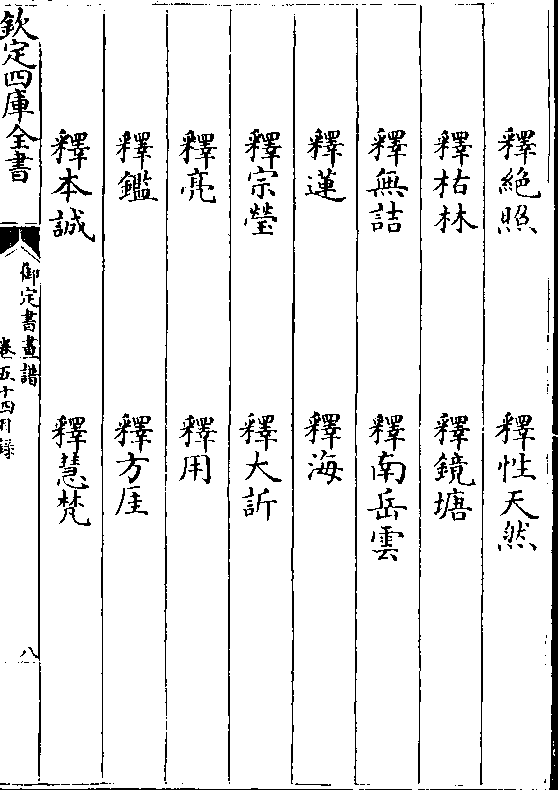 釋絶照　釋性天然
釋枯林　釋鏡塘
釋無詰　釋南岳雲
釋蓮　釋海
釋宗瑩　釋大訢
釋亮　釋用
釋鑑　釋方厓
釋本誠　釋慧梵
欽定四庫全書
御定書畫譜
卷五十四目錄
八